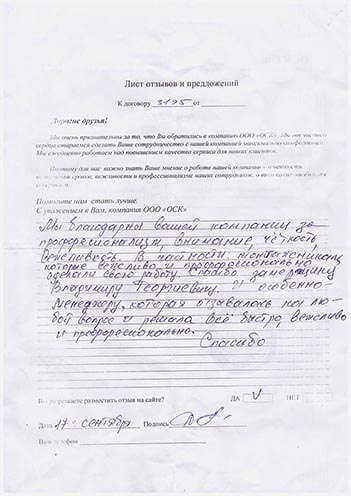 Лист отзывов и предложений
К договору 3195 от
Дорогие друзья!
Мы очень признательны за то, что Вы обратились в компанию ООО «ОСК». Мы от чистого
сердца стараемся сделать Ваше сотрудничество с нашей компанией максимально комфортным.
Мы ежедневно работаем над повышением качества сервиса для наших клиентов.
Поэтому для нас важно знать Ваше мнение о работе нашей компании
сроков, вежливости и профессионализме наших сотрудников, о
Помогите нам стать лучше.
С уважением к Вам, компания ООО «ОСК»
Мы благодарны вашей компании за
профессионализм, внимание, чёткость,
вежливость. В частности, монтажникам,
которые вежливо и профессионально
сделали свою работу. Спасибо замерщику
Владимиру Георгиевичу. И особенно-
Менеджеру, которая отзывалась на лю-
бой вопрос и решала всё быстро, вежливо
и профессионально.
Спасибо
Вы разрешаете разместить отзыв на сайте? ДА V НЕТ
Дата 17 сентября Подпись
Ваш телефон